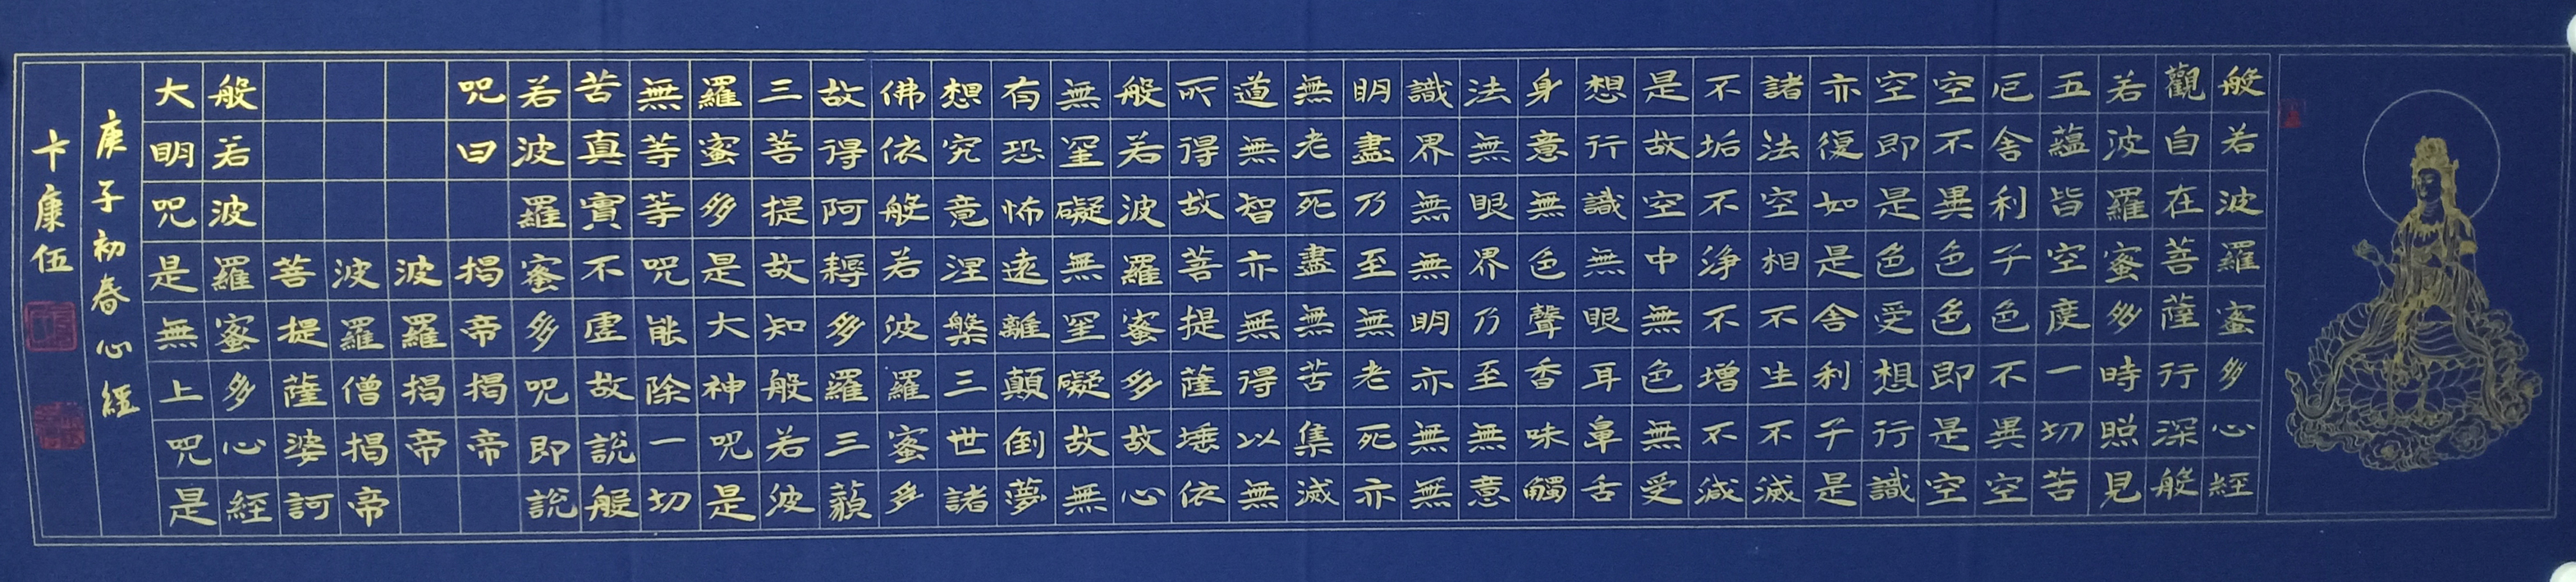 般若波羅蜜多心經
觀自在菩薩行深般
若波羅蜜多時照見
五蘊皆空度一切苦
厄舍利子色不異空
空不異色色即是空
空即是色受想行識
亦復如是舍利子是
諸法空相不生不滅
不垢不淨不增不減
是故空中無色無受
想行識無眼耳鼻舌
身意無色聲香味觸
法無眼界乃至無意
識界無無明亦無無
明盡乃至無老死亦
無老死盡無苦集滅
道無智亦無得以無
所得故菩提薩埵依
般若波羅蜜多故心
無罣礙無罣礙故無
有恐怖遠離顛倒夢
想究竟涅槃三世諸
佛依般若波羅蜜多
故得阿耨多羅三藐
三菩提故知般若波
羅蜜多是大神呪是
無等等呪能除一切
苦真實不虛故說般
若波羅蜜多呪即說
呪曰 揭帝揭帝
波羅揭帝
波羅僧揭帝
菩提薩婆訶
般若波羅蜜多心經
大明呪是無上呪是
庚子初春心經
卞康伍